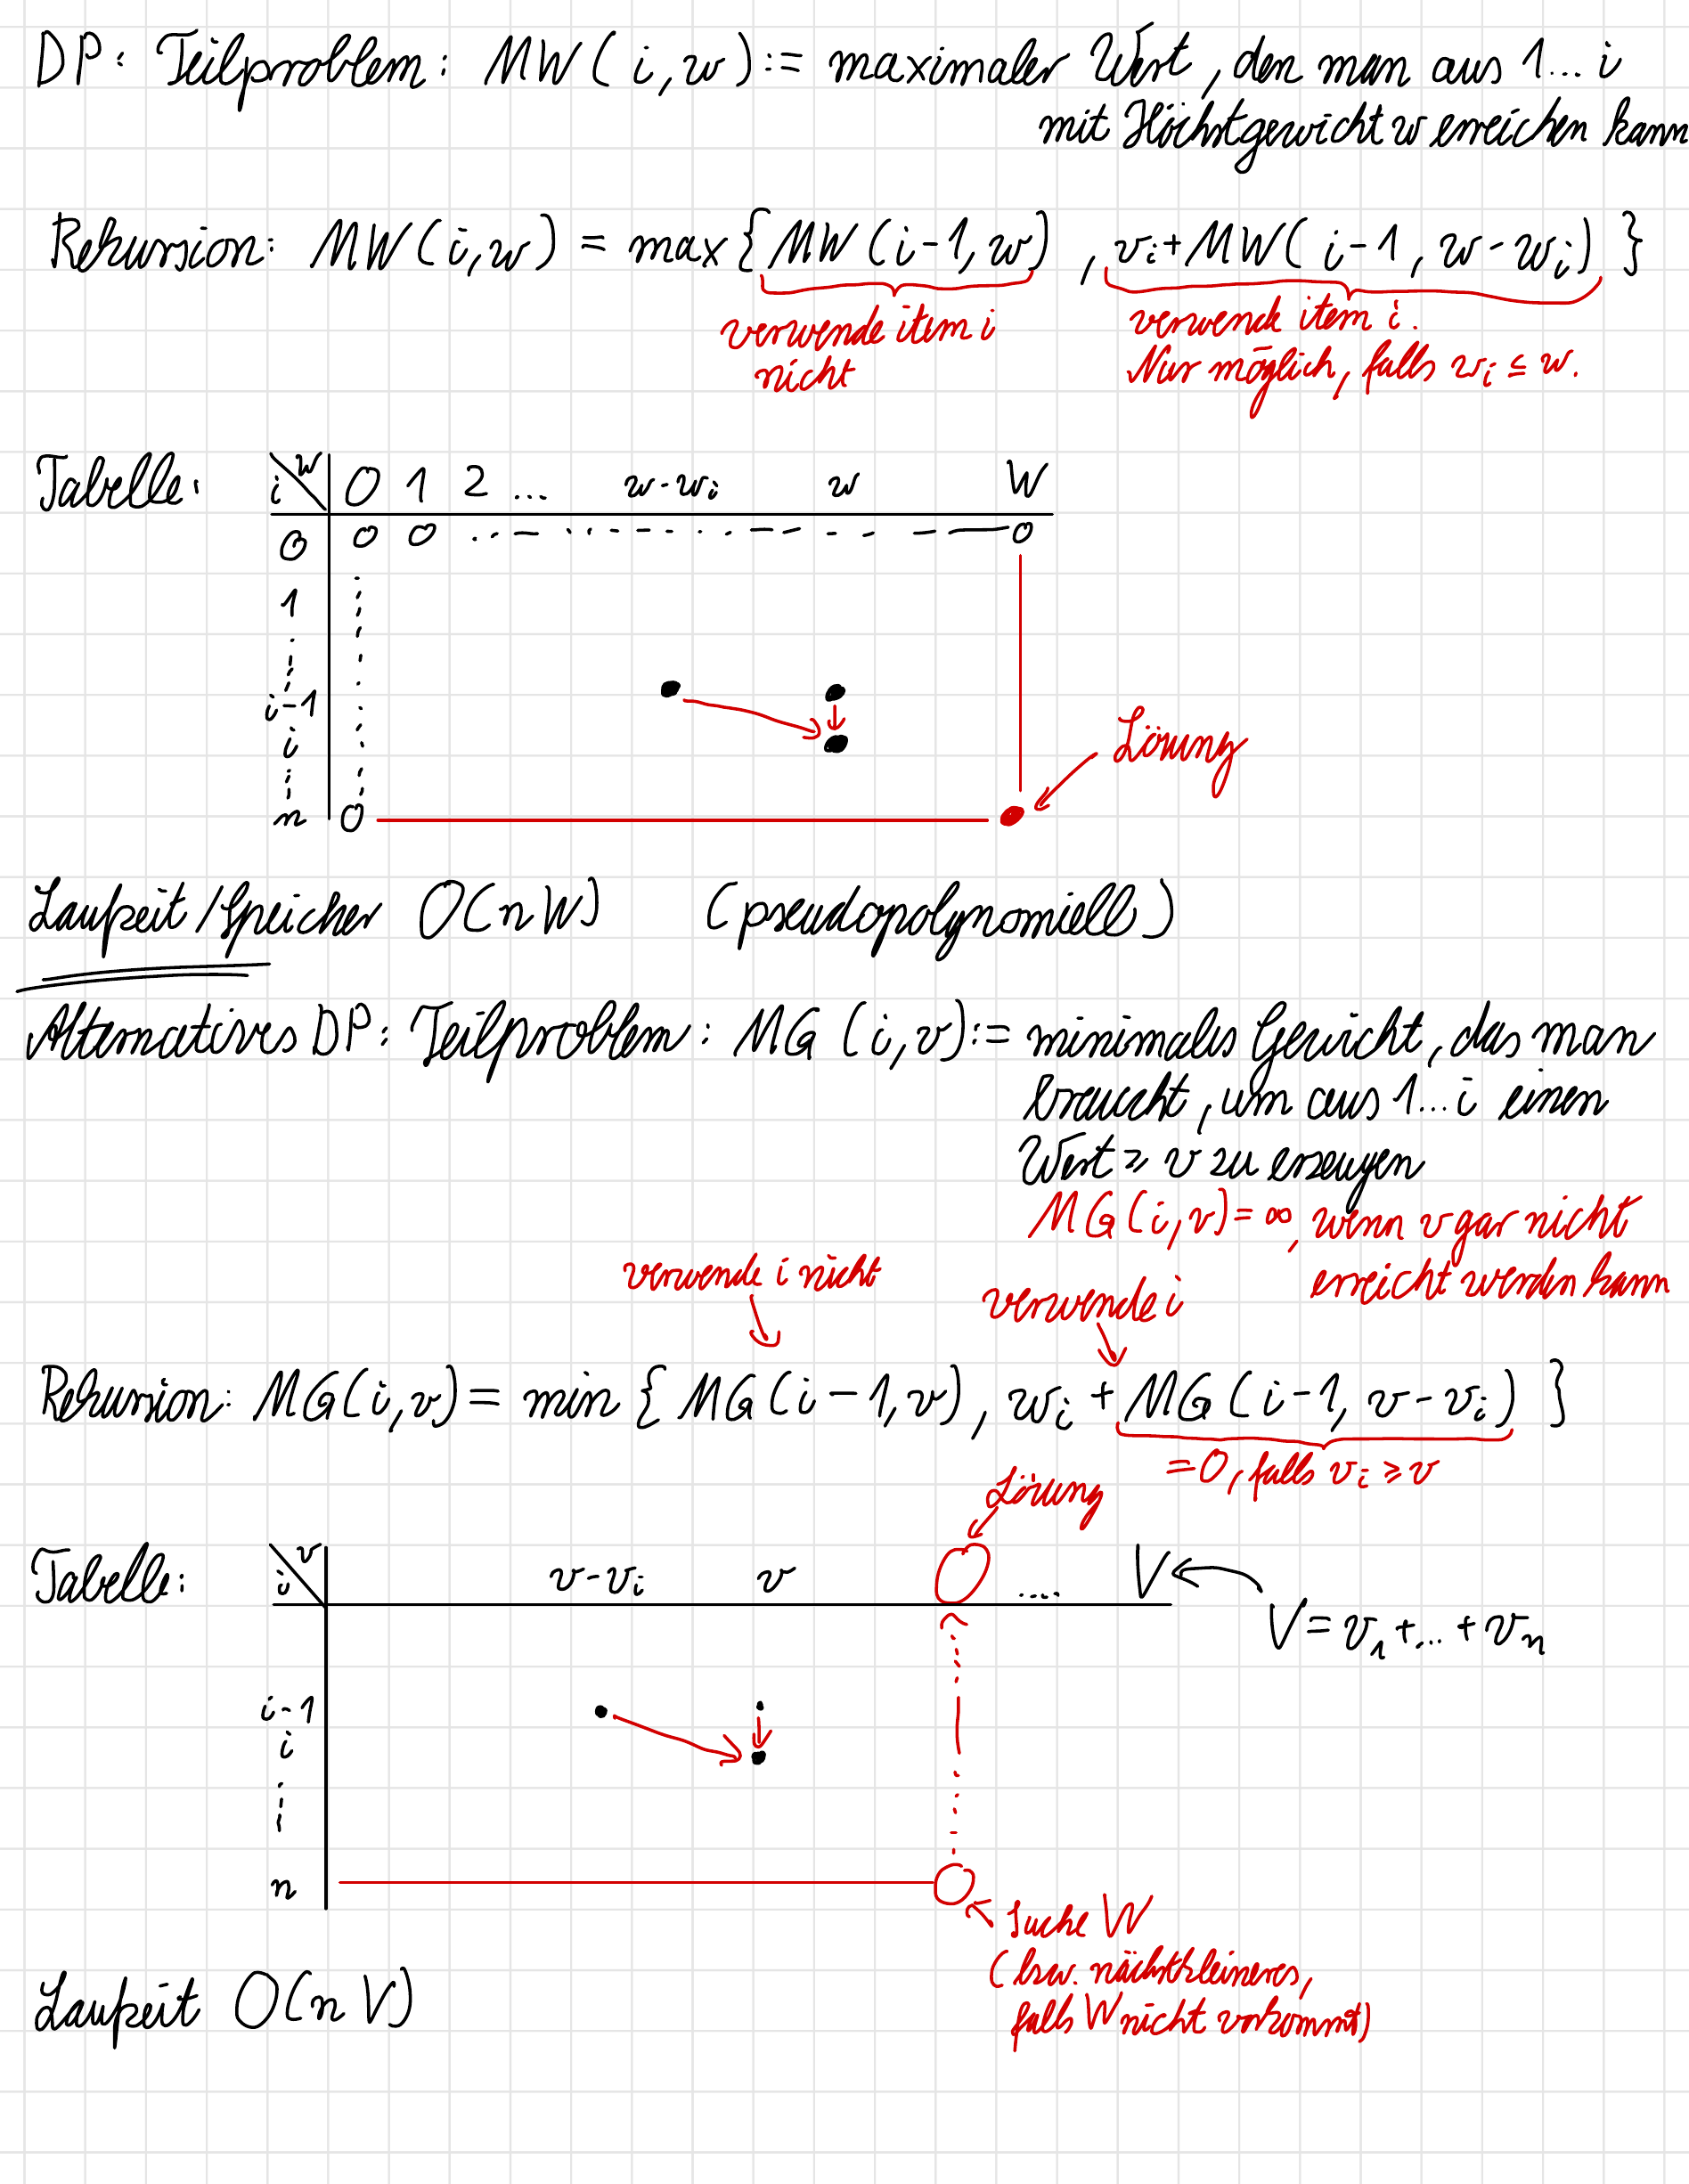 DP: Teilproblem: MW(i,w) := maximaler Wert, den man aus 1...i
mit Höchstgewicht w erreichen kann
Rekursion: MW(i,w) = max{MW(i-1,w), vᵢ+MW(i-1,w-wᵢ)}
verwende item i
nicht
verwende item i.
Nur möglich, falls wᵢ ≤ w.
Tabelle:
i w 0 1 2 ... w-wᵢ w W
0 0 0 0
1
i-1
i
Lösung
n 0
Laufzeit/Speicher O(nW) (pseudopolynomiell)
Alternatives DP: Teilproblem: MG(i,v) := minimales Gewicht, das man
braucht, um aus 1...i einen
Wert ≥ v zu erzeugen
MG(i,v) = ∞, wenn v gar nicht
erreicht werden kann
verwende i nicht
verwende i
Rekursion: MG(i,v) = min{MG(i-1,v), wᵢ+MG(i-1,v-vᵢ)}
=0, falls vᵢ ≥ v
Lösung
Tabelle:
i v v-vᵢ v .... V
V = v₁+...+vₙ
i-1
i
n
Suche W
(bzw. nächstkleineres,
falls W nicht vorkommt)
Laufzeit O(nV)